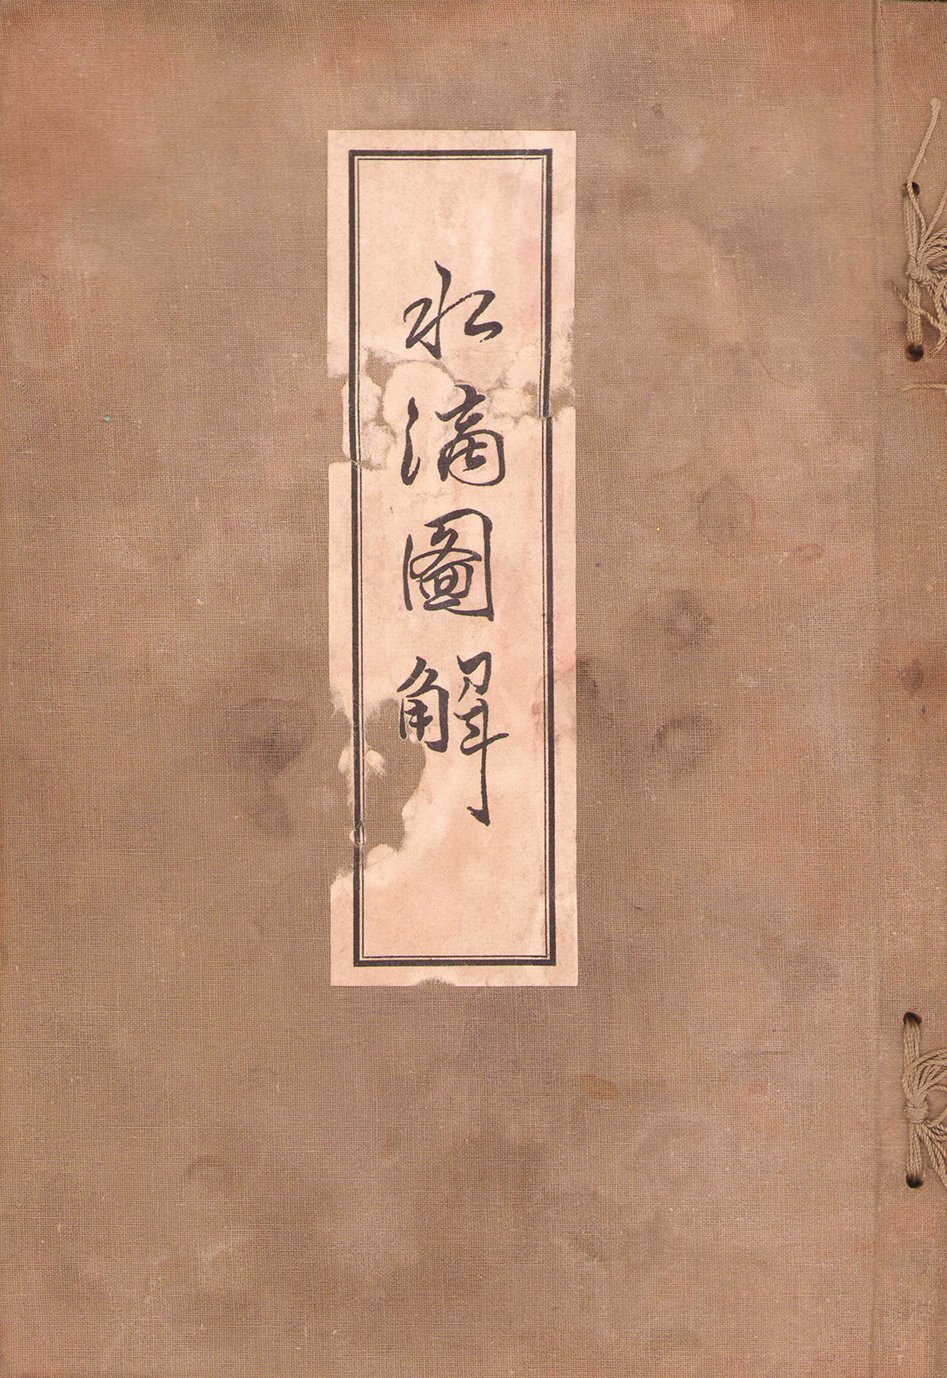 水滴圖解